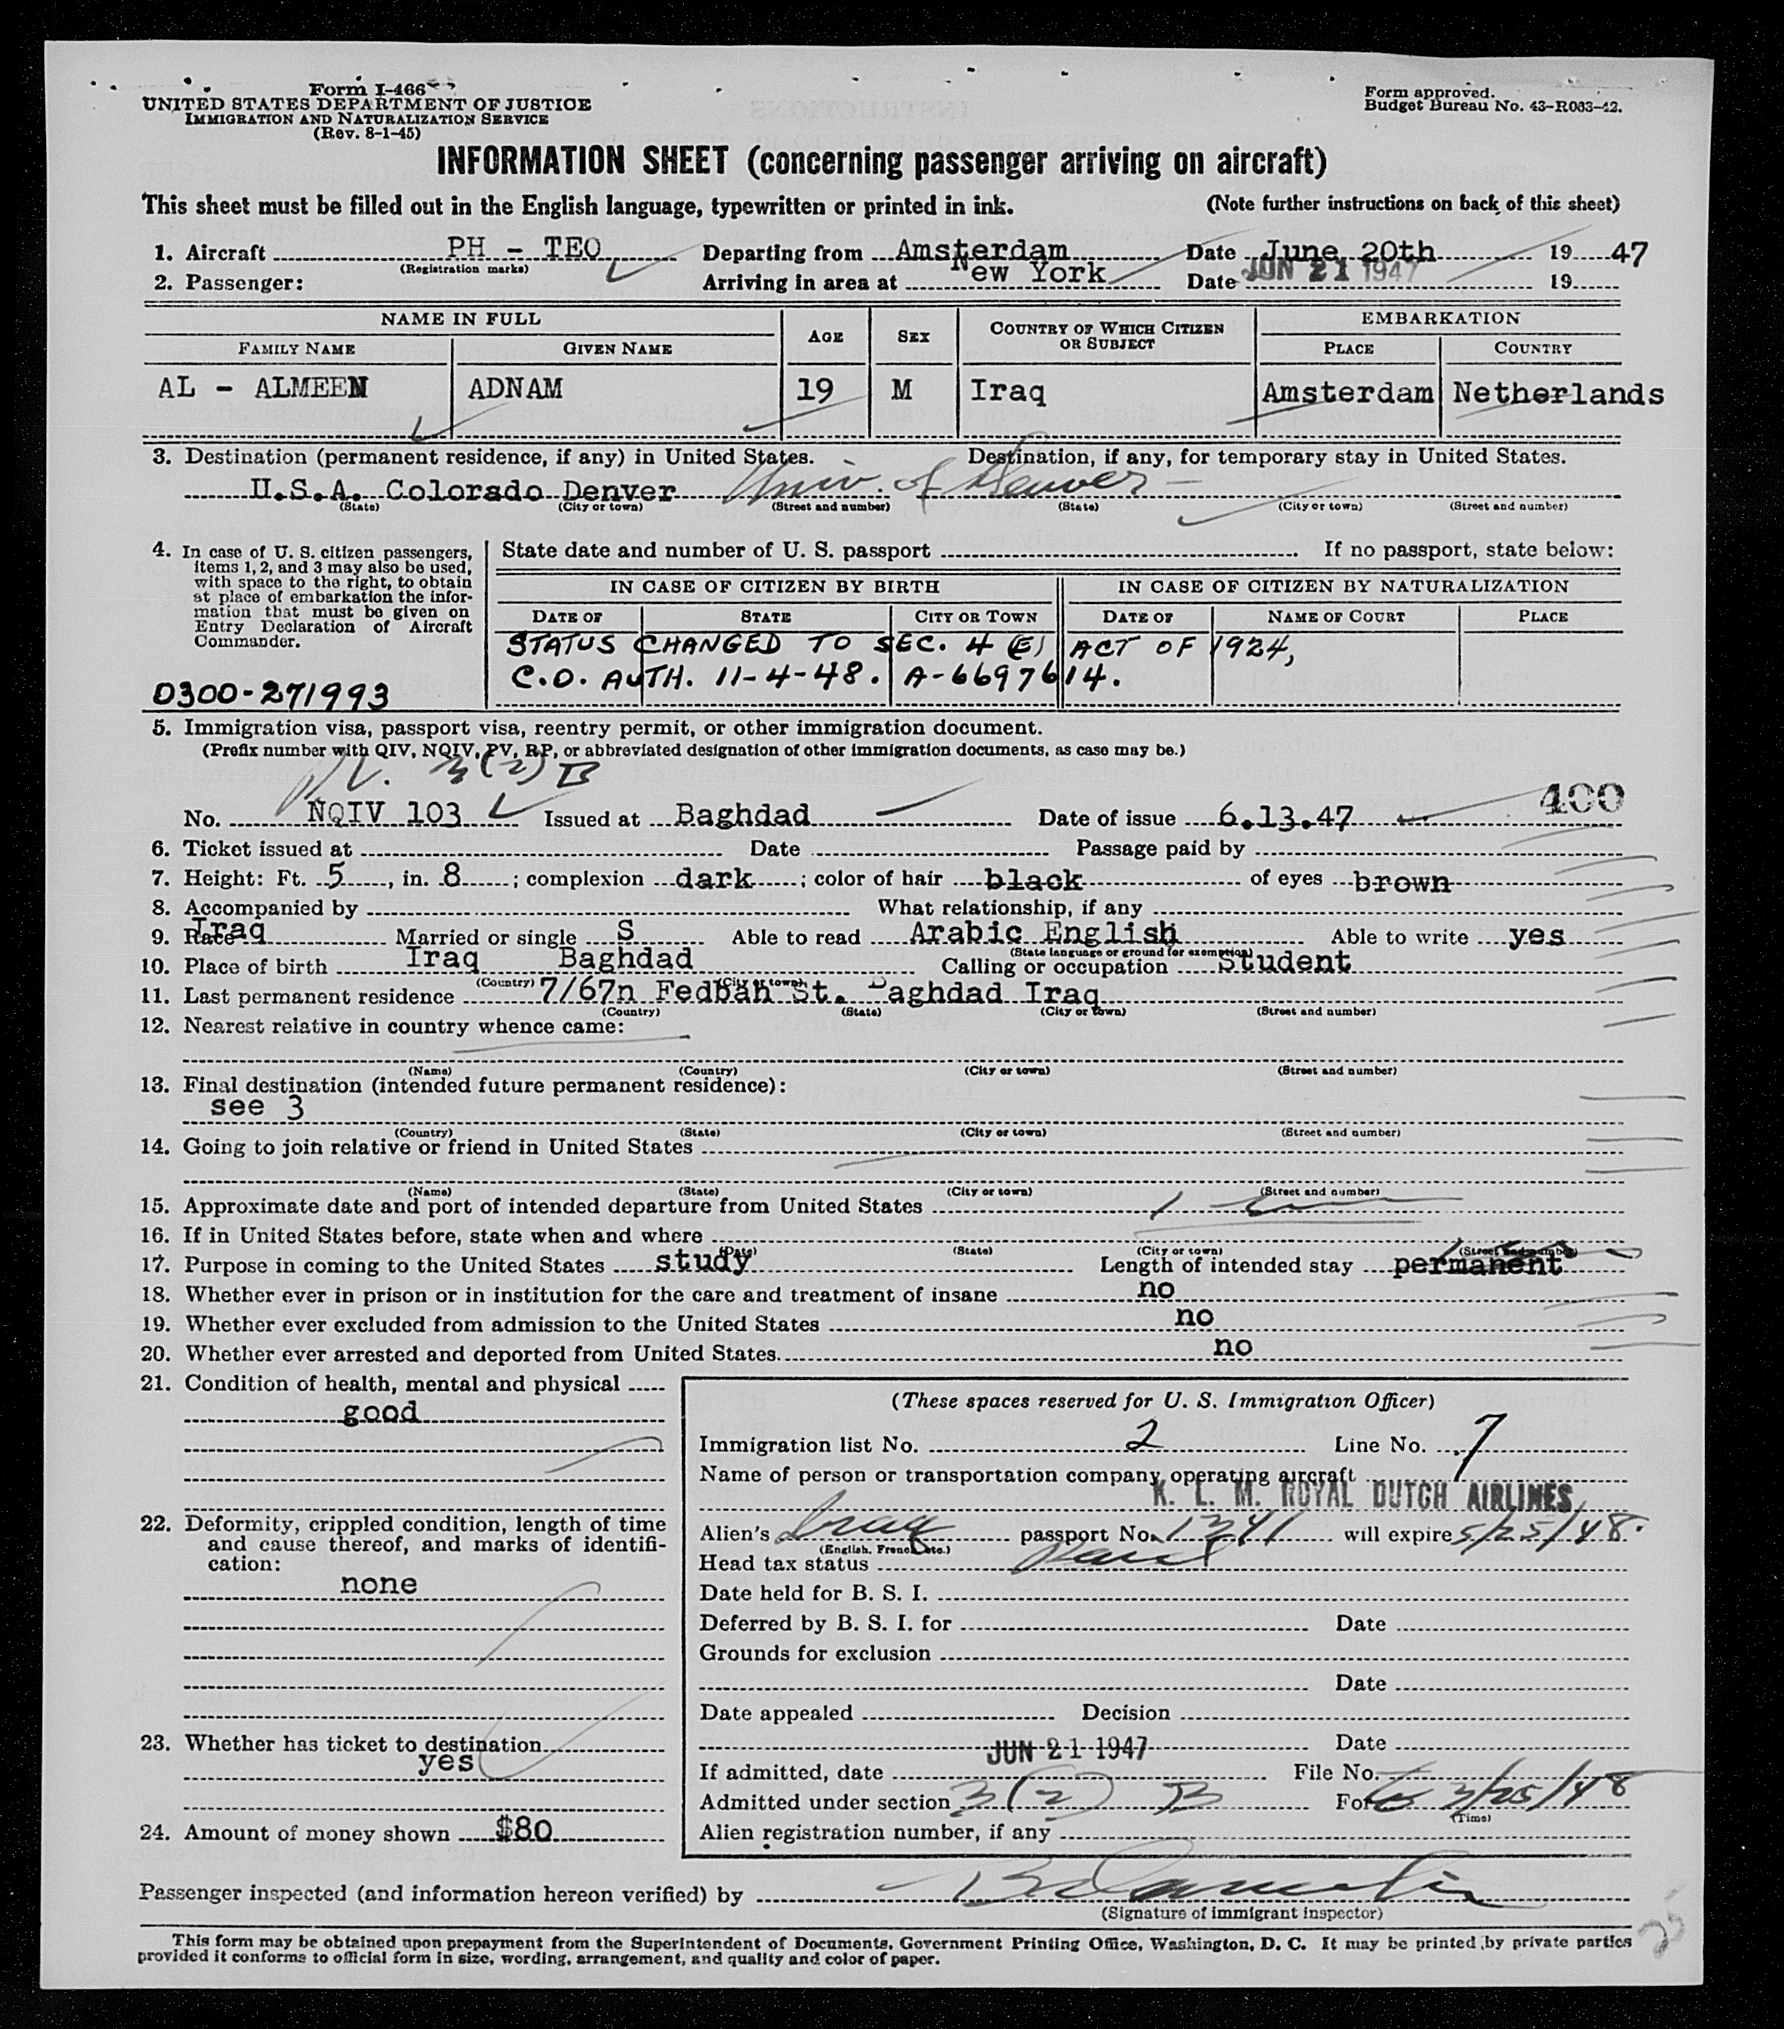 Form I-466
UNITED STATES DEPARTMENT OF JUSTICE
IMMIGRATION AND NATURALIZATION SERVICE
(Rev. 8-1-45)
Form approved.
Budget Bureau No. 43-R063-42.
INFORMATION SHEET (concerning passenger arriving on aircraft)
This sheet must be filled out in the English language, typewritten or printed in ink. (Note further instructions on back of this sheet)
1. Aircraft PH - TEO Departing from Amsterdam Date June 20th 19 47
(Registration marks)
2. Passenger: Arriving in area at New York Date JUN 21 1947 19
NAME IN FULL AGE SEX COUNTRY OF WHICH CITIZEN OR SUBJECT EMBARKATION
FAMILY NAME GIVEN NAME PLACE COUNTRY
AL - ALMEEN ADNAM 19 M Iraq Amsterdam Netherlands
3. Destination (permanent residence, if any) in United States. Destination, if any, for temporary stay in United States.
U.S.A. Colorado Denver Univ. of Denver -
(State) (City or town) (Street and number) (State) (City or town) (Street and number)
4. In case of U. S. citizen passengers, items 1, 2, and 3 may also be used, with space to the right, to obtain at place of embarkation the information that must be given on Entry Declaration of Aircraft Commander.
State date and number of U. S. passport If no passport, state below:
IN CASE OF CITIZEN BY BIRTH IN CASE OF CITIZEN BY NATURALIZATION
DATE OF STATE CITY OR TOWN DATE OF NAME OF COURT PLACE
STATUS CHANGED TO SEC. 4 (E) ACT OF 1924,
C.O. AUTH. 11-4-48. A-6697614.
0300-271993
5. Immigration visa, passport visa, reentry permit, or other immigration document.
(Prefix number with QIV, NQIV, PV, RP, or abbreviated designation of other immigration documents, as case may be.)
3(2) B
400
No. NQIV 103 Issued at Baghdad Date of issue 6.13.47
6. Ticket issued at Date Passage paid by
7. Height: Ft. 5, in. 8; complexion dark; color of hair black of eyes brown
8. Accompanied by What relationship, if any
9. Race Iraq Married or single S Able to read Arabic English Able to write yes
(State language or ground for exemption)
10. Place of birth Iraq Baghdad Calling or occupation Student
(Country) (City or town)
11. Last permanent residence 7/67n Fedbah St. Baghdad Iraq
(Country) (State) (City or town) (Street and number)
12. Nearest relative in country whence came:
(Name) (Country) (City or town) (Street and number)
13. Final destination (intended future permanent residence):
see 3
(Country) (State) (City or town) (Street and number)
14. Going to join relative or friend in United States
(Name) (State) (City or town) (Street and number)
15. Approximate date and port of intended departure from United States
16. If in United States before, state when and where
(Date) (State) (City or town) (Street and number)
17. Purpose in coming to the United States study Length of intended stay permanent
18. Whether ever in prison or in institution for the care and treatment of insane no
19. Whether ever excluded from admission to the United States no
20. Whether ever arrested and deported from United States. no
21. Condition of health, mental and physical
good
22. Deformity, crippled condition, length of time and cause thereof, and marks of identification:
none
23. Whether has ticket to destination
yes
24. Amount of money shown $80
(These spaces reserved for U. S. Immigration Officer)
Immigration list No. 2 Line No. 7
Name of person or transportation company operating aircraft
K. L. M. ROYAL DUTCH AIRLINES
Alien's Iraq passport No. 1341 will expire 5/25/48.
(English, French, etc.)
Head tax status
Date held for B. S. I.
Deferred by B. S. I. for Date
Grounds for exclusion
Date
Date appealed Decision
Date
If admitted, date JUN 21 1947 File No.
Admitted under section 3(2) B For 3/25/48
(Time)
Alien registration number, if any
Passenger inspected (and information hereon verified) by
(Signature of immigrant inspector)
This form may be obtained upon prepayment from the Superintendent of Documents, Government Printing Office, Washington, D. C. It may be printed by private parties
provided it conforms to official form in size, wording, arrangement, and quality and color of paper.